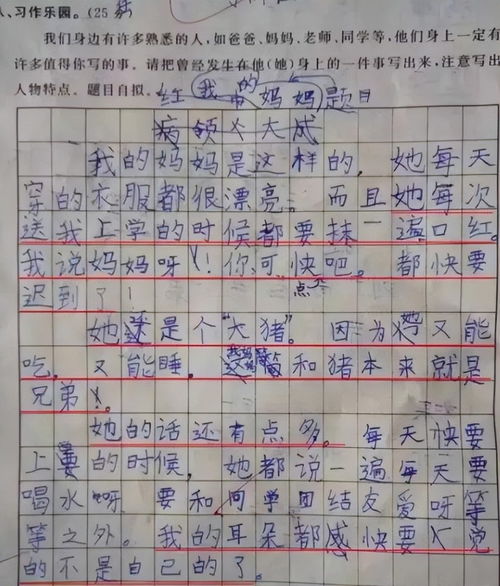 、习作乐园。(25
我们身边有许多熟悉的人,如爸爸、妈妈、老师、同学等,他们身上一定有
许多值得你写的事。请把曾经发生在他(她)身上的一件事写出来,注意写出
人物特点。题目自拟。
我的妈妈 题目
我的妈妈是这样的,她每天
穿的衣服都很漂亮。而且她每次
送我上学的时候都要抹一遍口红。
我说妈妈呀!你可快点吧。都快要
迟到了!
她还是个"大猪"。因为猪又能
吃,又能睡。我妈妈和猪本来就是
兄弟!
她的话还有点多。每天快要
上学的时候,她都说一遍每天要
喝水呀 要和同学团结友爱呀等
等之外。我的耳朵都感快要不觉
的不是自己的了。